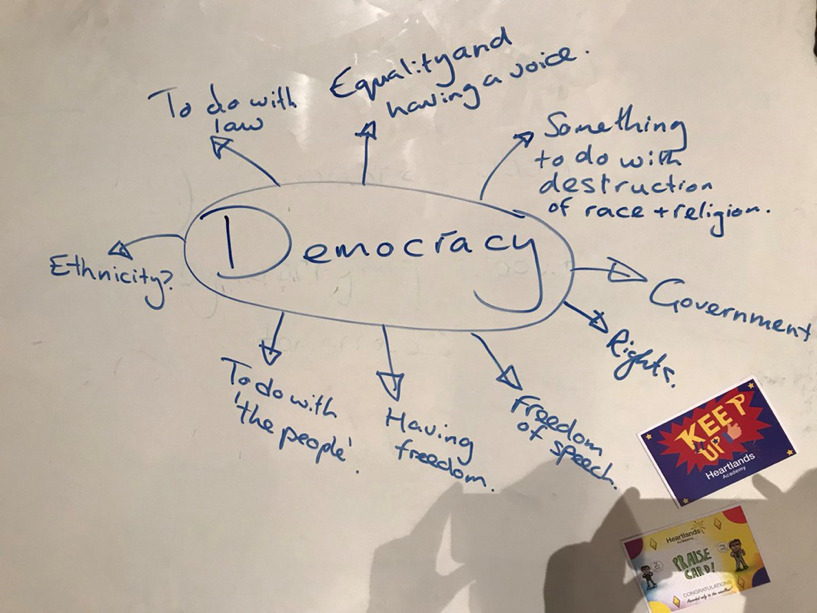 To do with
law
Equality and
having a voice.
Something
to do with
destruction
of race + religion.
Democracy
Ethnicity?
Government
Rights.
To do with
'the people'.
Having
freedom.
Freedom
of speech.
KEEP
UP
Heartlands
Academy
Heartlands
PRAISE
CARD!
CONGRATULATIONS